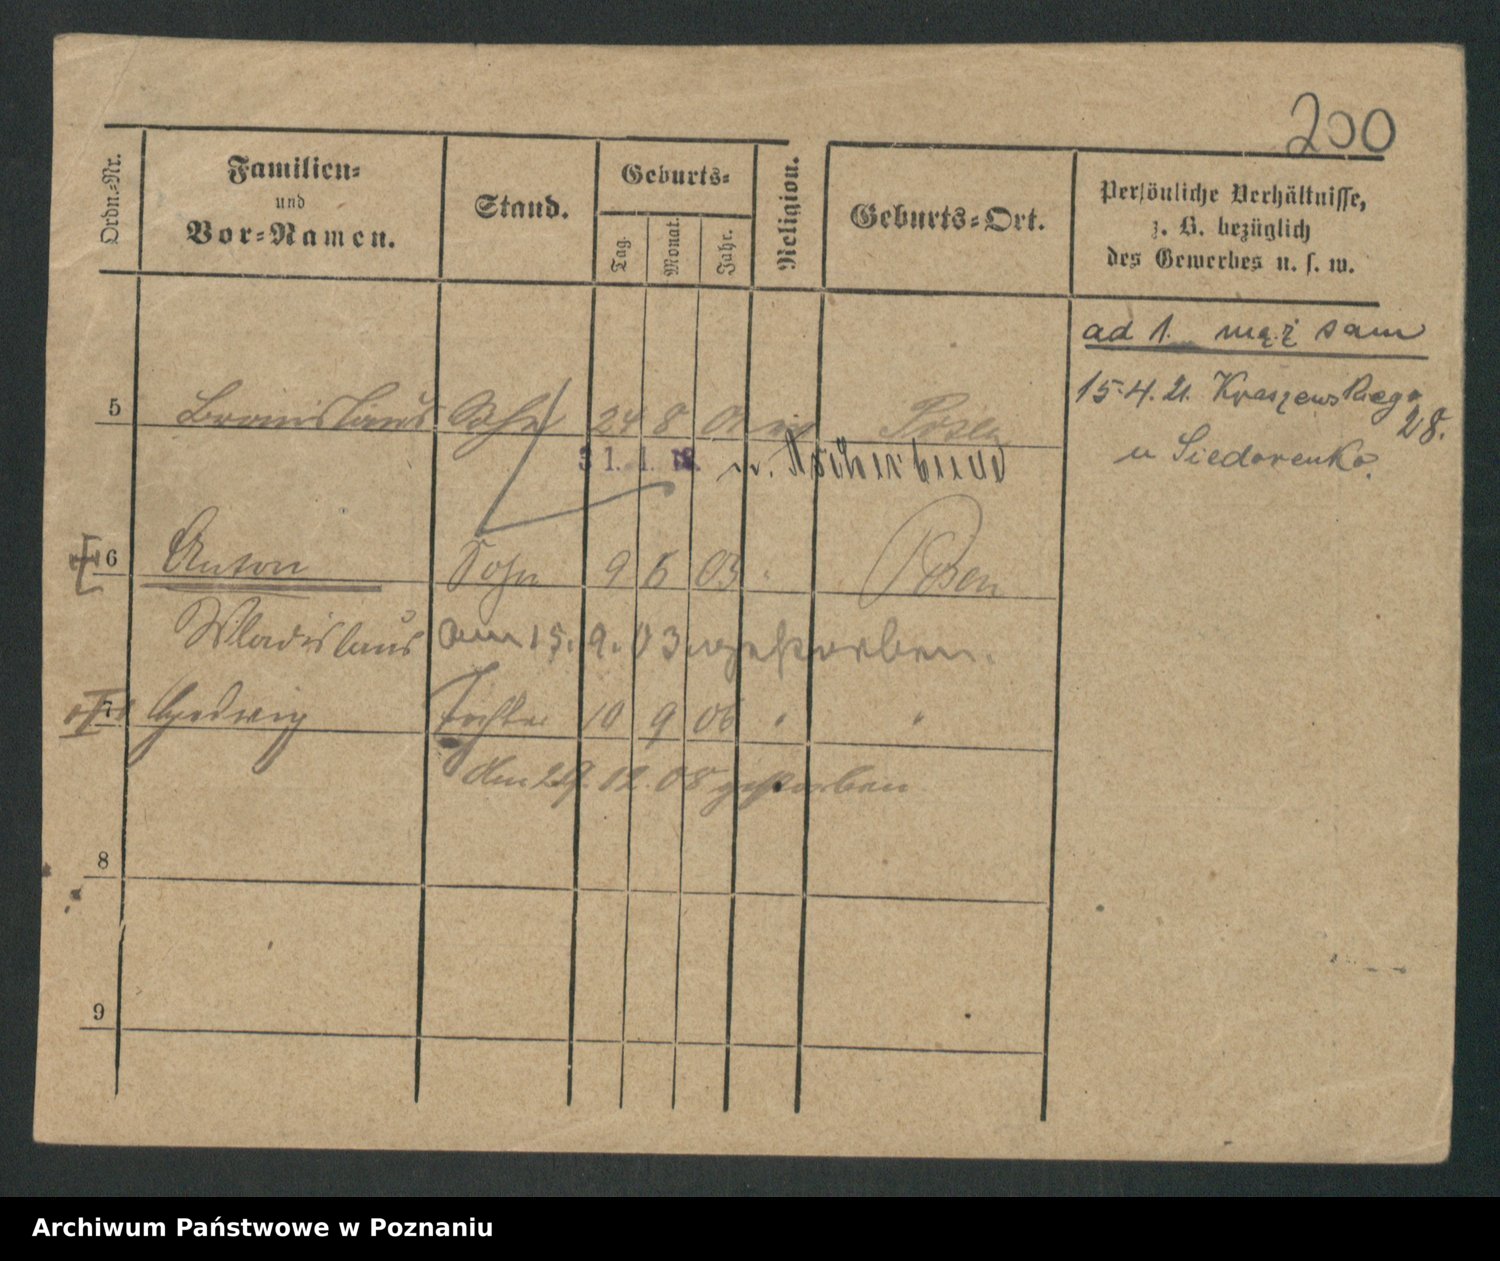 200
Ordn.-Nr.
Familien-
und
Vor-Namen.
Stand.
Geburts-
Tag.
Monat.
Jahr.
Religion.
Geburts-Ort.
Persönliche Verhältnisse,
z. B. bezüglich
des Gewerbes u. s. w.
ad 1. mąż sam
15.4.21. Kraszewskiego
28.
u Siedorenko.
5 Bronislaus Sohn 24 8 01 Posen
31. 1. 18. n. Aschersbude
6 Anton Sohn 9 6 03 " Posen
Wladislaus am 15. 9. 03 gestorben.
7 Hedwig Tochter 10 9 06 " "
Am 29. 12. 08 gestorben
8
9
Archiwum Państwowe w Poznaniu